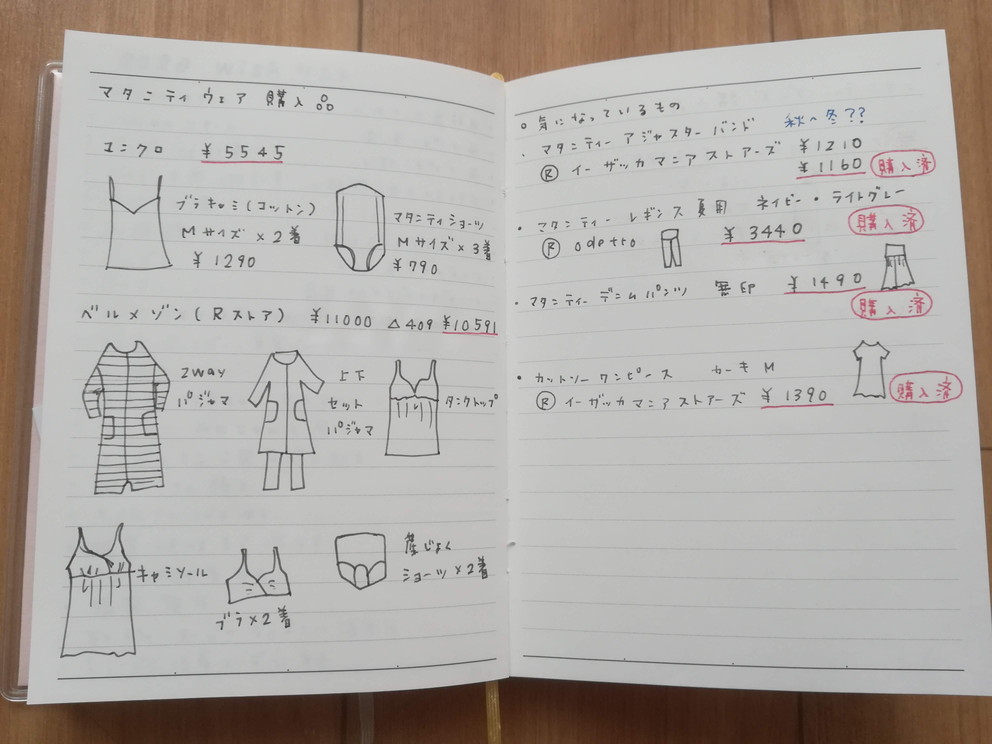 マタニティウェア 購入品
ユニクロ ¥5545
ブラキャミ(コットン)
Mサイズ×2着
¥1290
マタニティショーツ
Mサイズ×3着
¥790
ベルメゾン(Rストア) ¥11000 △409 ¥10591
2way
パジャマ
上下
セット
パジャマ
タンクトップ
キャミソール
ブラ×2着
産じょく
ショーツ×2着
○ 気になっているもの
・マタニティーアジャスターバンド 秋〜冬??
Ⓡ イーザッカマニアストアーズ ¥1210
¥1160 購入済
・マタニティー レギンス 夏用 ネイビー・ライトグレー
Ⓡ Odette ¥3440 購入済
・マタニティーデニムパンツ 無印 ¥1490
購入済
・カットソーワンピース カーキ M
Ⓡ イーザッカマニアストアーズ ¥1390 購入済